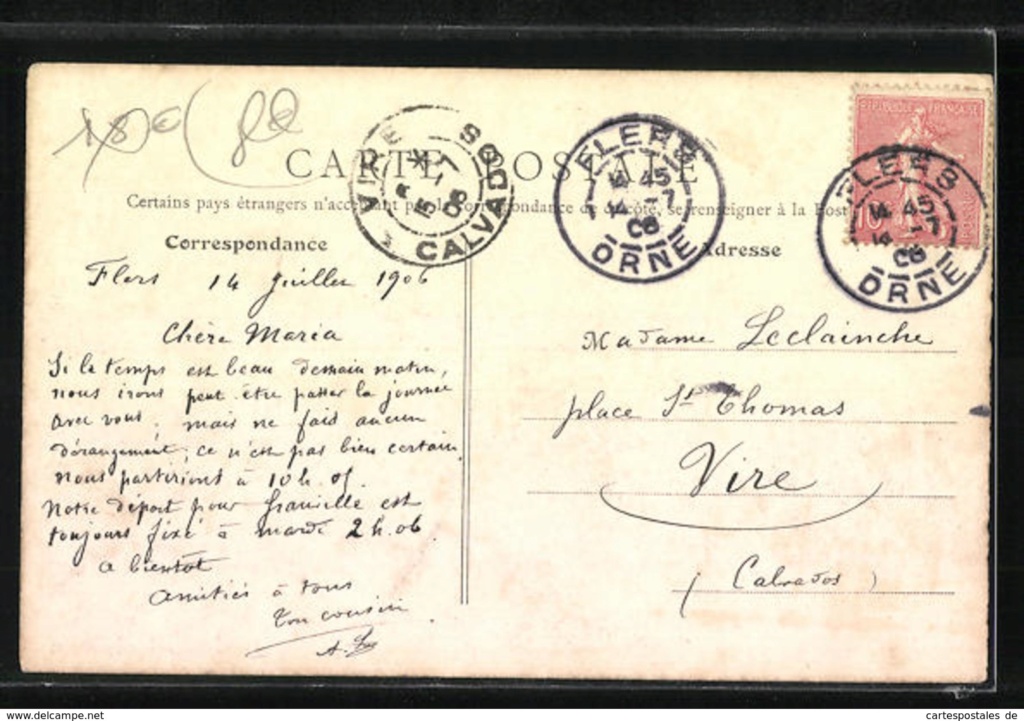 180 (82
CARTE POSTALE
Certains pays étrangers n'acceptant pas la correspondance de ce côté, se renseigner à la Poste
Correspondance
Adresse
VIRE
CALVADOS
15-7
06
FLERS
45
14-7
06
ORNE
RÉPUBLIQUE FRANÇAISE
10
FLERS
45
14-7
06
ORNE
Flers 14 Juillet 1906
Chère Maria
Si le temps est beau demain matin,
nous irons peut être passer la journée
avec vous. mais ne fais aucun
dérangement, ce n'est pas bien certain.
nous partirions à 10 h.
Notre départ pour Granville est
toujours fixé à mardi 2 h. 06
a bientôt
Amitiés à tous
ton cousin
Madame Leclainche
place St Thomas
Vire
(Calvados)
www.delcampe.net
cartespostales de